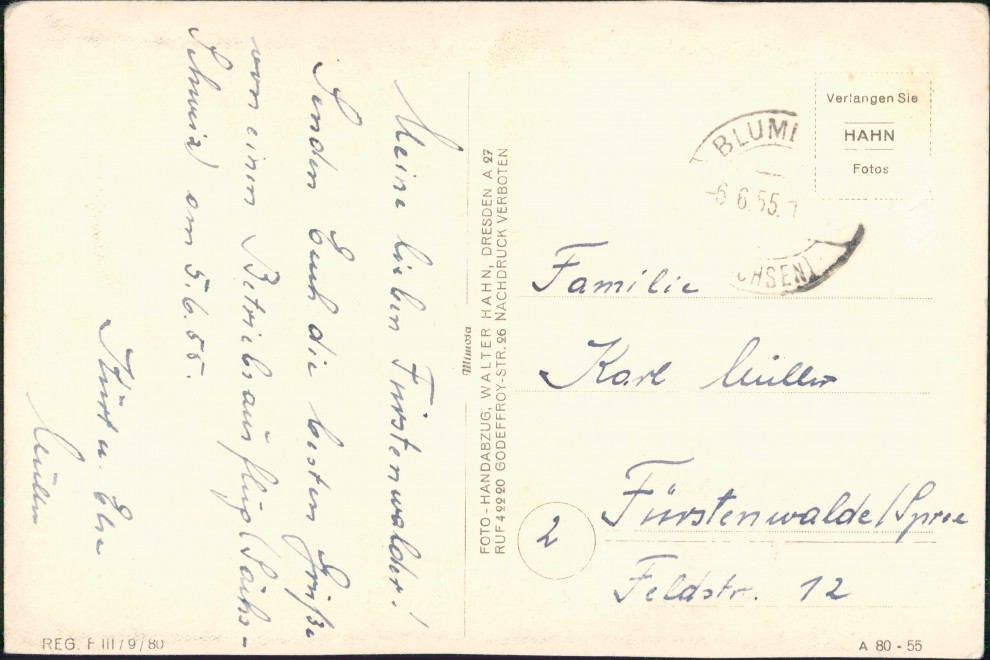 Meine lieben Fürstenwalder!
Senden Euch die besten Grüße
von einem Betriebsausflug (Sächs-
Schweiz) am 5.6.55.
Kurt u. Else
Müller
Mimosa
FOTO-HANDABZUG, WALTER HAHN, DRESDEN A 27
RUF 42220 GODEFFROY-STR. 26 NACHDRUCK VERBOTEN
Verlangen Sie
HAHN
Fotos
BLUM
-6 6.55.7
CHSEN)
Familie
Karl Müller
2
Fürstenwalde/Spree
Feldstr. 12
REG. F III/9/80
A 80 - 55